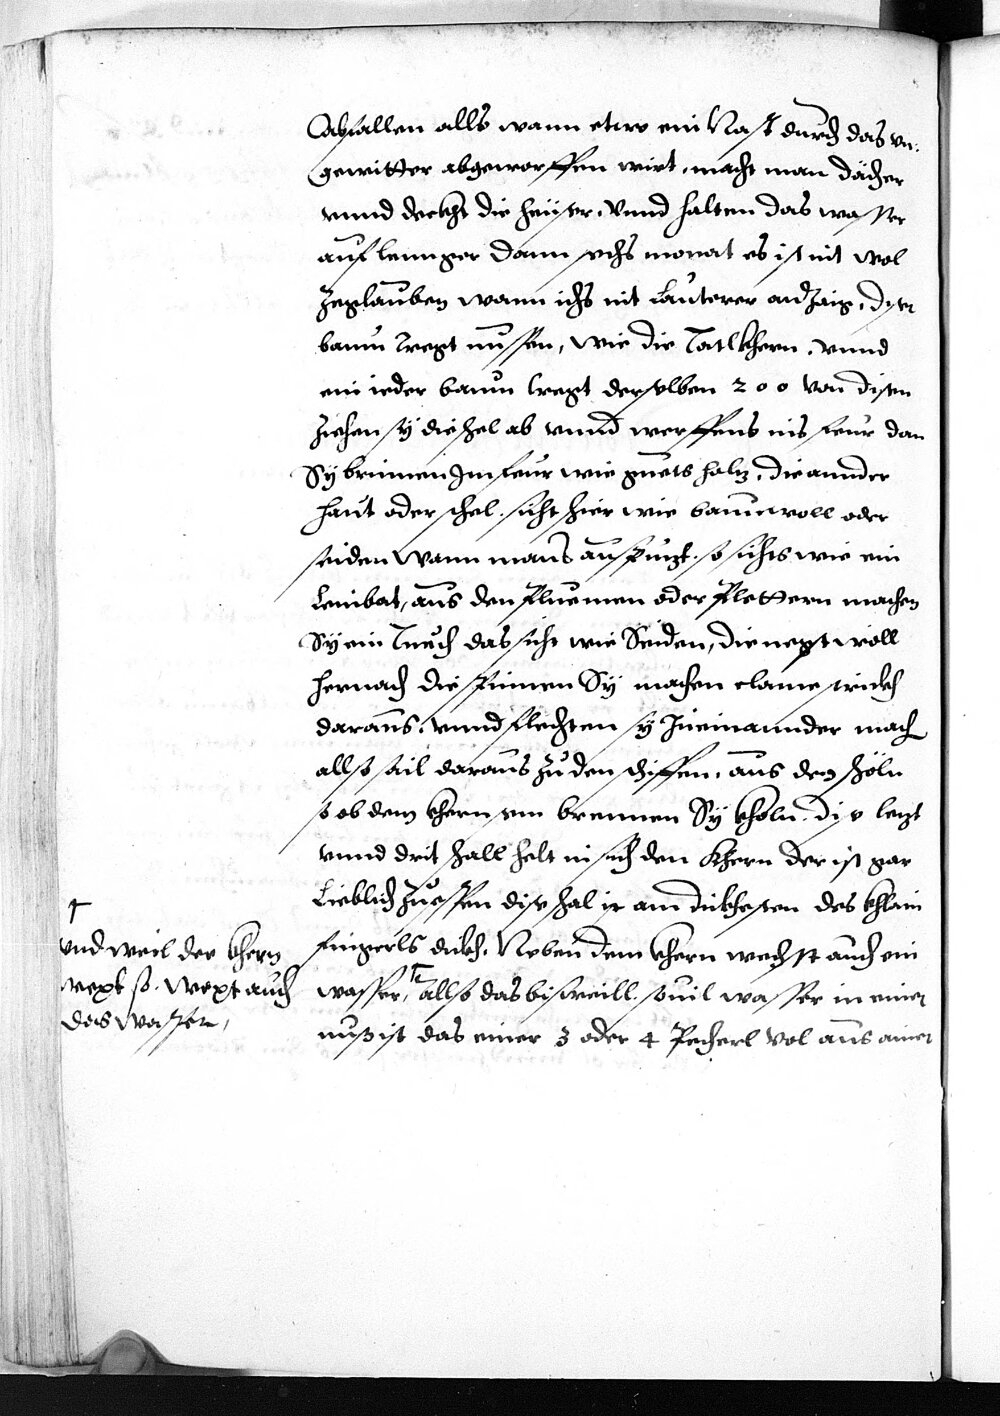 abfallen alls wann etwo ein Nast durch das vn¬
gewitter abgeworffen wirt, macht man dächer
vnnd deckht die heüser, vnnd halten das wasser
auf lennger dann sechs monat es ist nit wol
zeglauben wann ichs nit lauterer anzaig, diser
baum tregt nussen, wie die Tatlkhern, vnnd
ein ieder baum tregt derselben 200 von disen
ziehen sÿ die hel ab vnnd werffens ins feur dan
Sÿ brinnen Im feur wie guets holtz, die annder
haut oder schel, sicht hier wie baumwoll oder
seiden wann mans aufspinzt, so sichts wie ein
leinbat, aus den pluemen oder plettern machen
Sÿ ein Tuech das sicht wie Seiden, die negst woll
hernach die spinnen Sÿ machen claine strickh
daraus, vnnd flechten sÿ Ineinannder mach
allso sail daraus zu den schiffen, aus den höln
so ob dem khern sein brennen Sÿ kholn, dise letzt
vnnd drit hall helt in sich den Khern der ist gar
Lieblich zu essen dise hal ist am dickhesten des khlain
fingerls dickh, Neben dem khern wechst auch ein
wasser, allso das bisweill, souil wasser in einer
nuß ist das einer 3 oder 4 Pecherl vol aus ainer
vnd weil der khern
wext so, wext auch
das wasser,